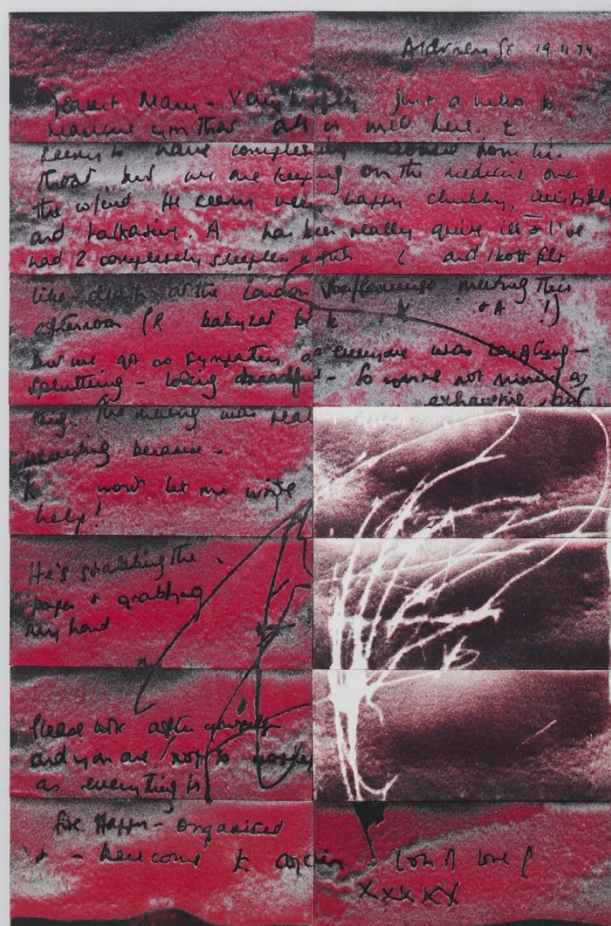 Alderney St 19.11.74
Dearest Mary - Very happy just a hello to
reassure you that all is well here. K
seems to have completely from his
throat but we are keeping on the medicine over
the w/end. He seems very happy chubby, irresistible
and talkative. A has been really quite ill = I've
had 2 completely sleepless nights & and I both felt
like death at the London conference meeting this
afternoon (R babysat for K + A !)
but we got no sympathy as everyone was coughing -
spluttering - looking dreadful - so
exhausting and
meeting was
because -
K won't let me write
help!
He's grabbing the
paper + grabbing
my hand
Please look after yourself
and you are not to worry
as everything is
fine Happy - organised
+ - here come K again Lots of love
XXXXX